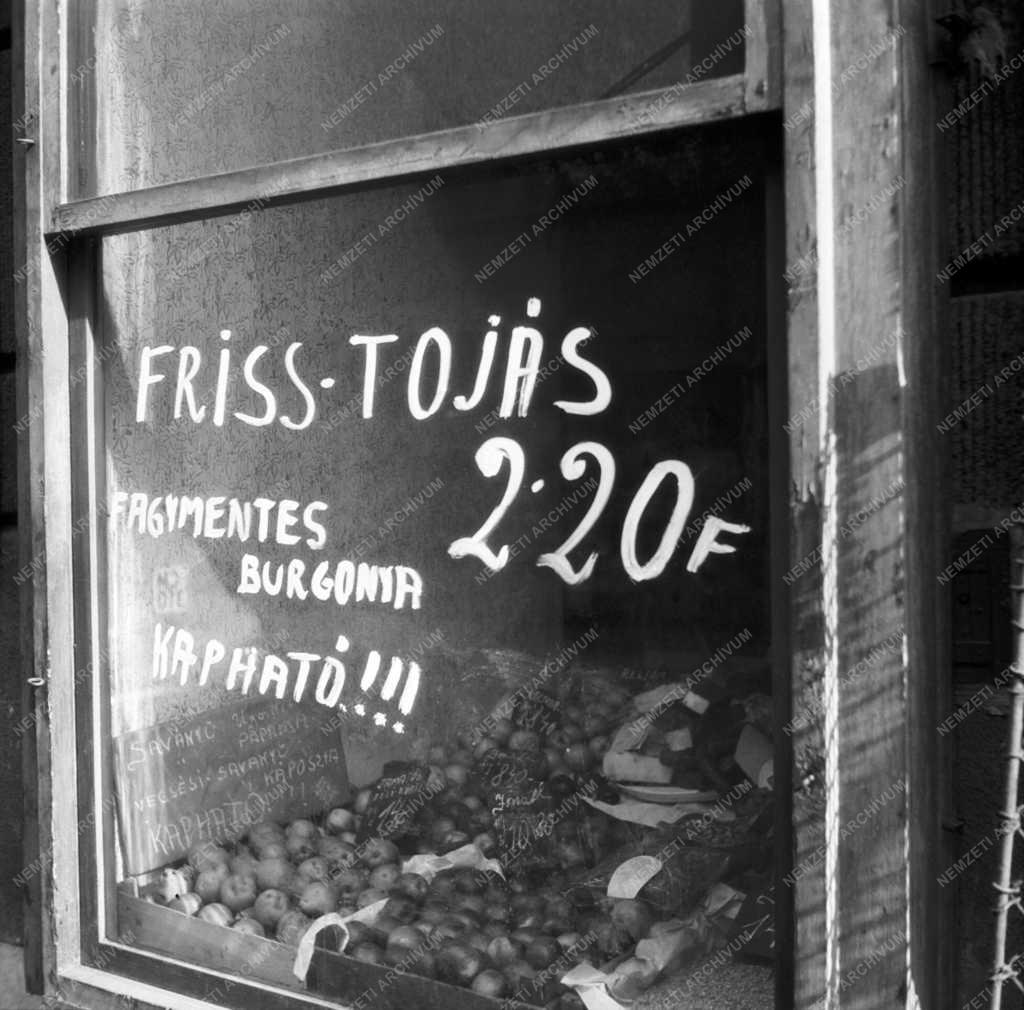 FRISS·TOJÁS
2·20F
FAGYMENTES
BURGONYA
KAPHATÓ!!!
SAVANYÚ PAPRIKA
VECSÉSI·SAVANYÚ
KÁPOSZTA
KAPHATÓ
Jonat
NEMZETI ARCHÍVUM